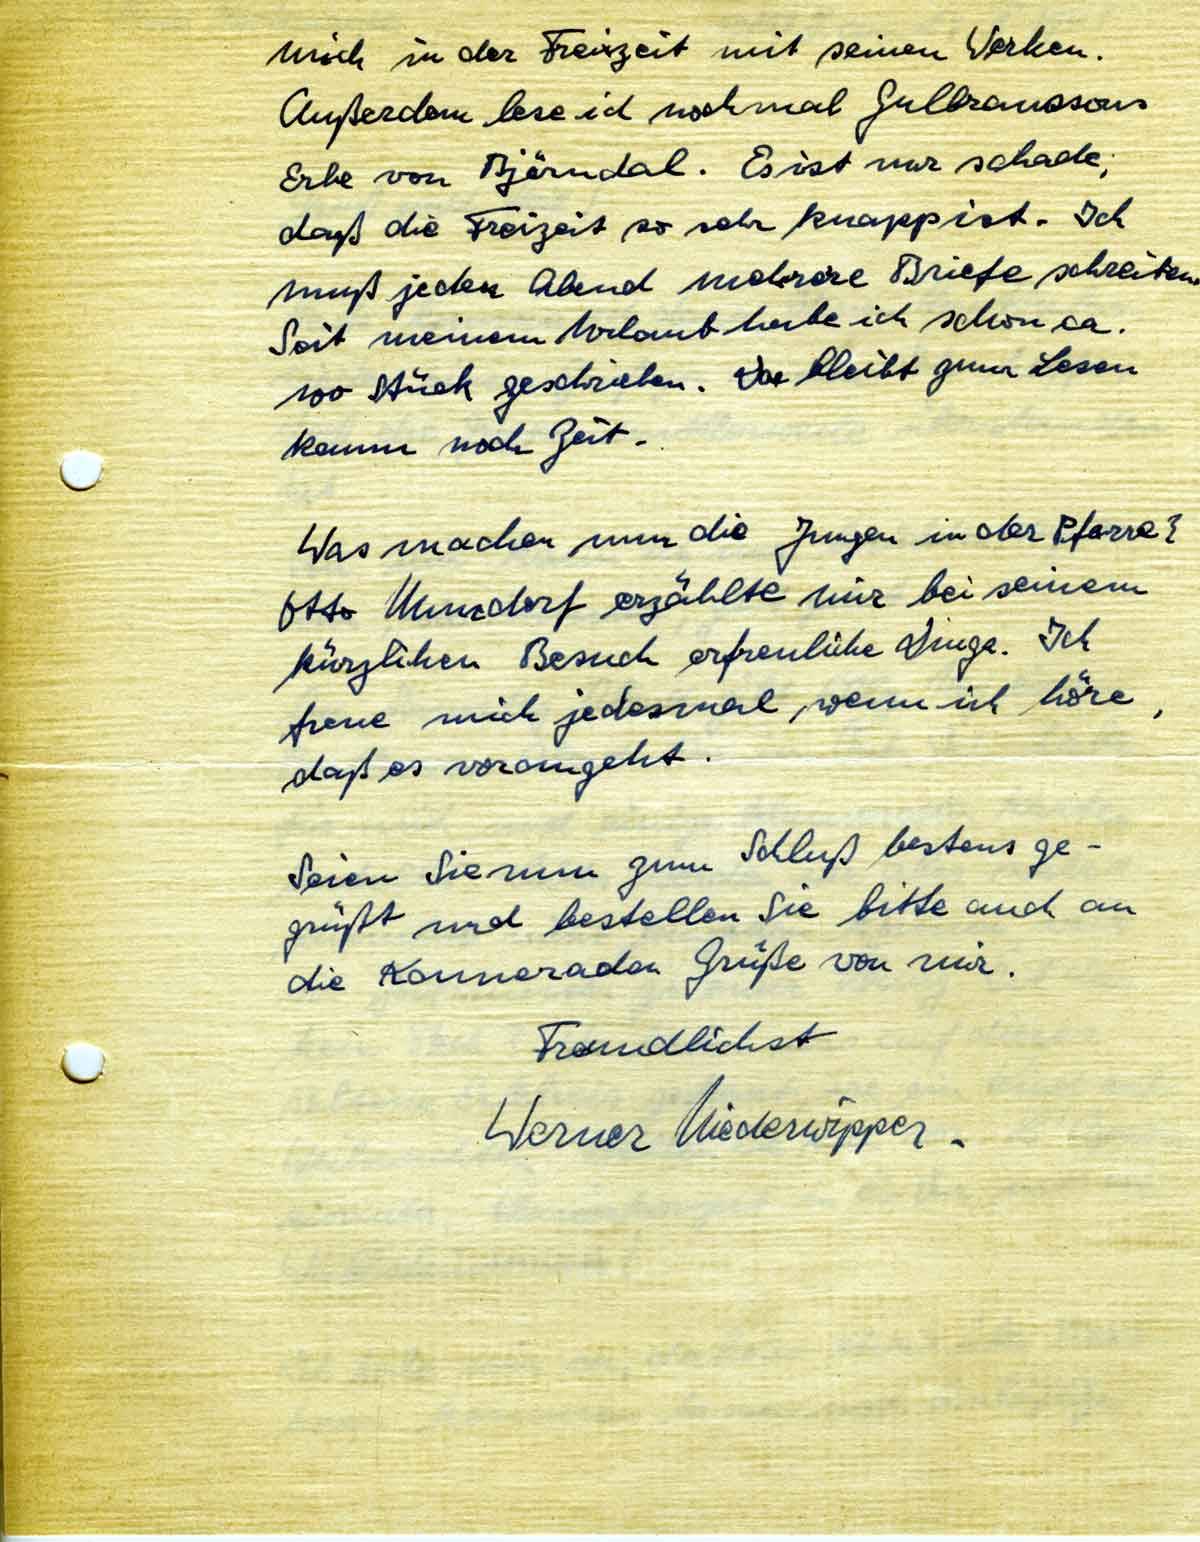 mich in der Freizeit mit seinen Werken.
Außerdem lese ich nochmal Gulbranssons
Erbe von Björndal. Es ist nur schade,
daß die Freizeit so sehr knapp ist. Ich
muß jeden Abend mehrere Briefe schreiben.
Seit meinem Urlaub habe ich schon ca.
100 Stück geschrieben. Da bleibt zum Lesen
kaum noch Zeit.
Was machen nun die Jungen in der Pfarre?
Otto erzählte mir bei seinem
kürzlichen Besuch erfreuliche Dinge. Ich
freue mich jedesmal, wenn ich höre,
daß es vorangeht.
Seien Sie nun zum Schluß bestens ge-
grüßt und bestellen Sie bitte auch an
die Kameraden Grüße von mir.
Freundlichst
Werner Niederwipper.